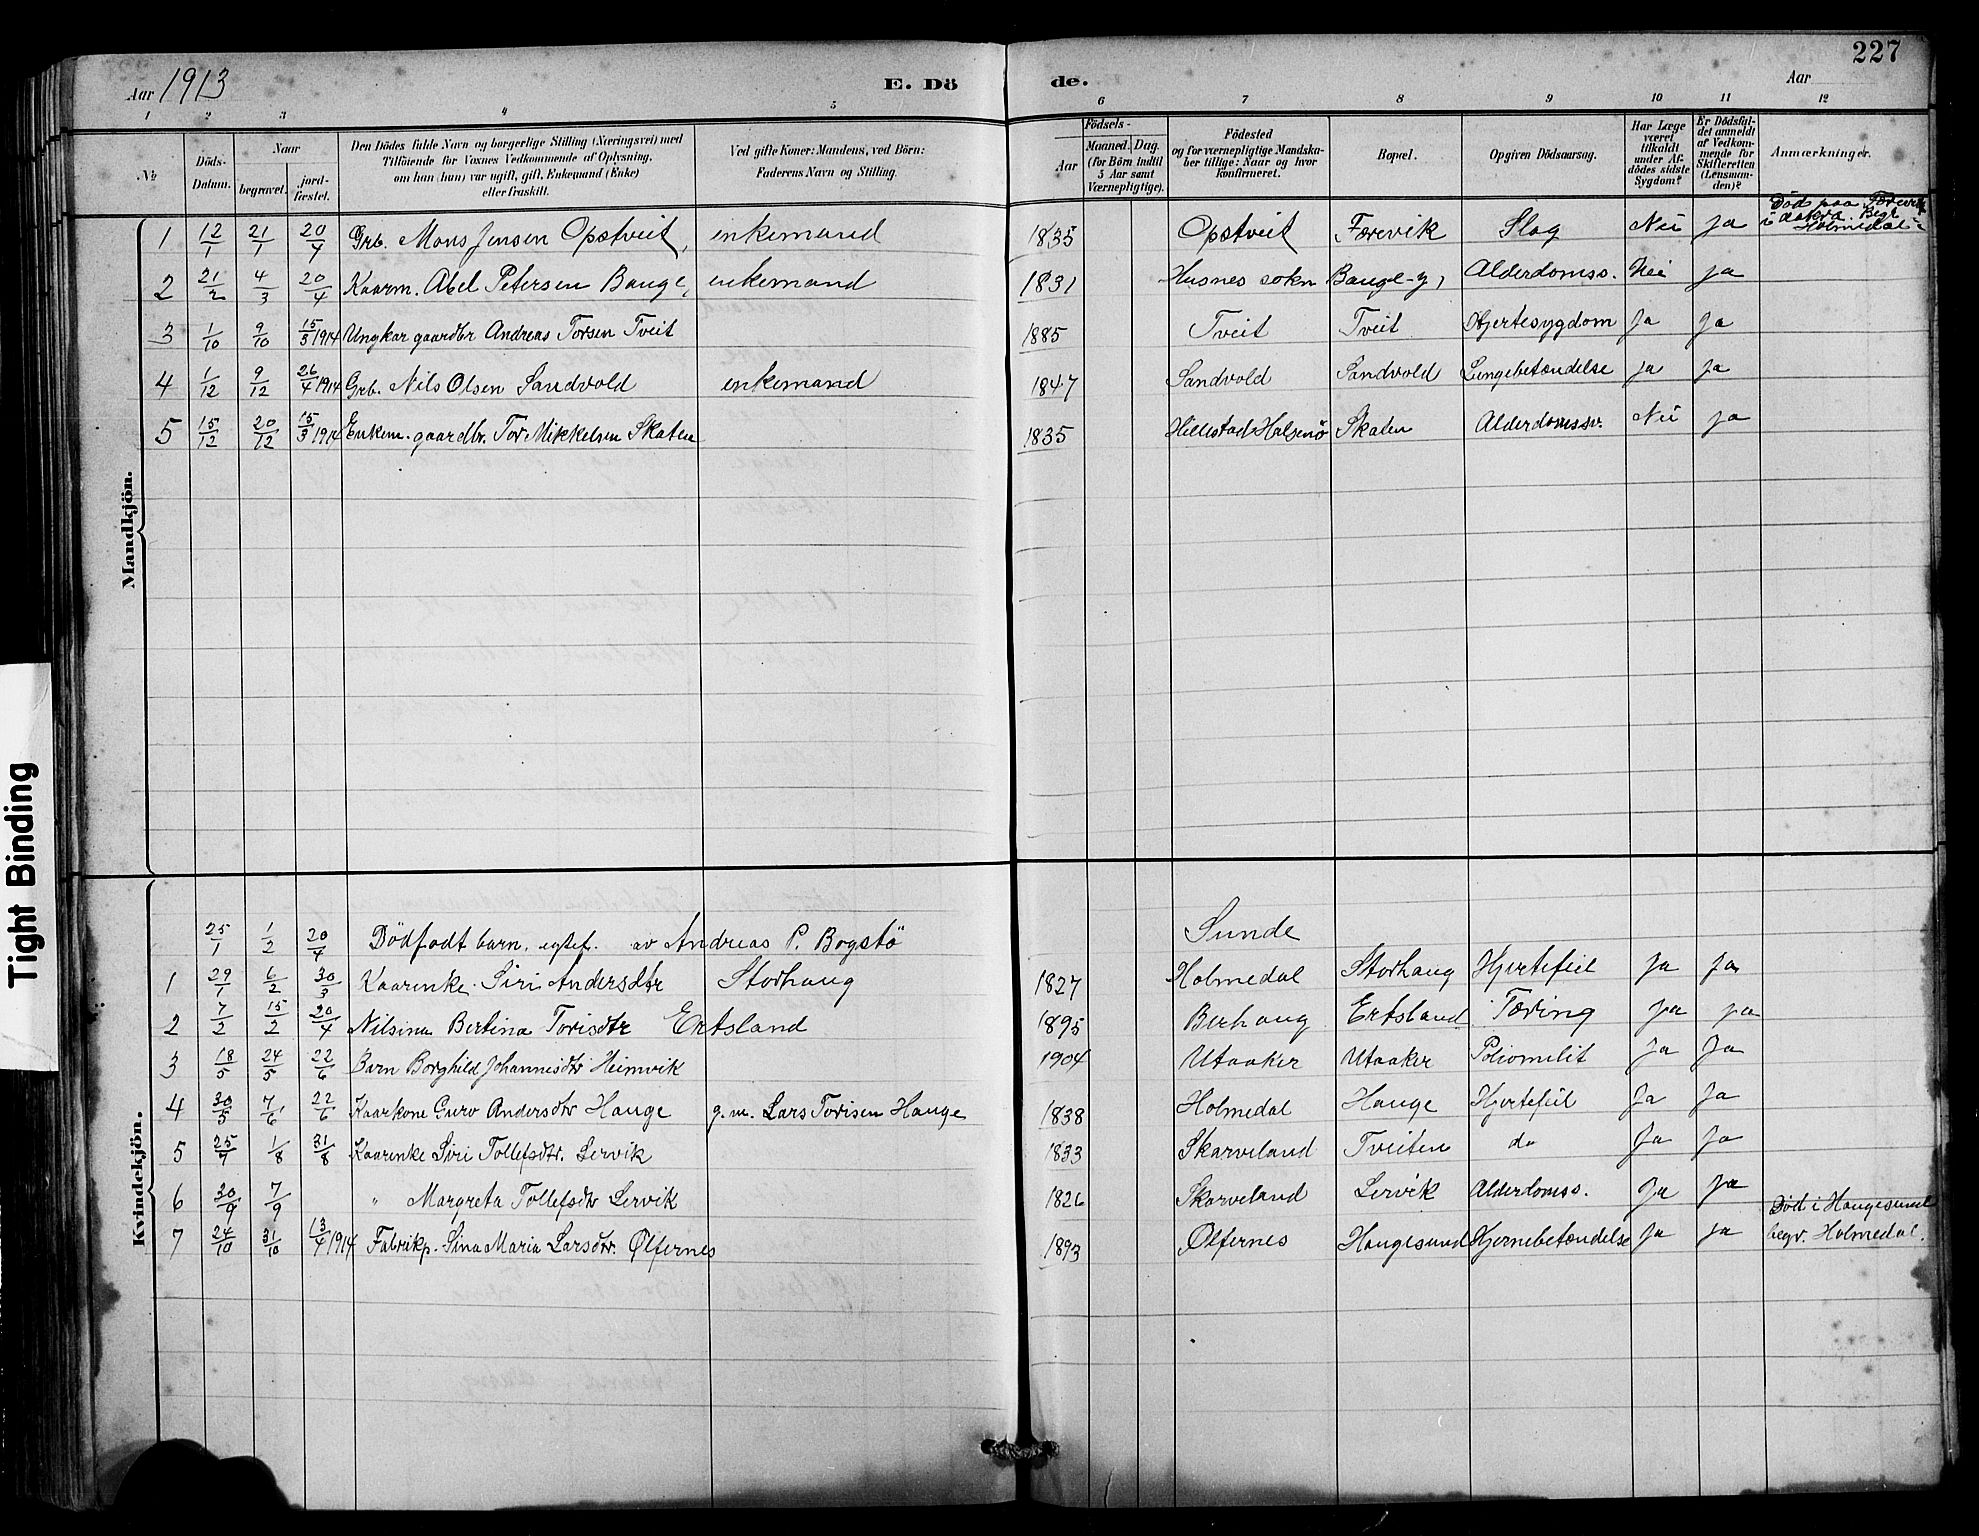 227
Aar 1913
E. Dö de.
Aar
1 2 3 4 5 6 7 8 9 10 11 12
No.
Döds-Datum.
Naar
begravet.
jord-fæstet.
Den Dödes fulde Navn og borgerlige Stilling (Næringsvei) med
Tilföiende for Voxnes Vedkommende af Oplysning,
om han (hun) var ugift, gift, Enkemand (Enke)
eller fraskilt.
Ved gifte Koner: Mandens, ved Börn:
Faderens Navn og Stilling.
Födsels-
Aar
Maaned. Dag.
(for Börn indtil
5 Aar samt
Værnepligtige).
Födested
og for værnepligtige Mandska-
ber tillige: Naar og hvor
konfirmeret.
Bopæl.
Opgiven Dödsaarsag.
Har Læge
været
tilkaldt
under Af-
dödes sidste
Sygdom?
Er Dödsfal-
det anmeldt
af Vedkom-
mende for
Skifteretten
(Lensman-
den)?
Anmærkninger.
Mandkjön.
1 12/1 21/1 20/4 Grb. Mons Jensen Opstveit, enkemand 1835 Opstveit Færevik Slag Nei ja Död paa Færevik
i Aakra. Begr.
i Holmedal
2 21/2 4/3 20/4 Kaarm. Abel Petersen Bauge, enkemand 1831 Husnes sokn Bauge-y, Alderdomss. Nei ja
3 1/10 9/10 15/3 1914 Ungkar gaardbr Andreas Torsen Tveit 1885 Tveit Tveit Hjertesygdom Ja ja
4 1/12 9/12 26/4 1914 Grb. Nils Olsen Sandvold enkemand 1847 Sandvold Sandvold Lungebetændelse ja ja
5 15/12 20/12 15/3 1914 Enkem. gaardbr. Tor Mikkelsen Skaten 1835 Hillestad Halsnö Skaten Alderdomssv. Nei ja
Kvindekjön.
25/1 1/2 20/4 Dödfödt barn, egtef. av Andreas P. Bogstö Sunde
1 29/1 6/2 30/3 Kaarenke Siri Andersdtr Storhaug 1827 Holmedal Storhaug Hjertefeil Ja ja
2 7/2 15/2 20/4 Nilsina Bertina Torisdtr Ertsland 1895 Berhaug Ertsland Tæring ja ja
3 18/5 24/5 22/6 Barn Borghild Johannisdtr Heimvik 1904 Utaaker Utaaker Poliomilit Ja ja
4 30/5 7/6 22/6 Kaarkone Guro Andersdtr Hauge g.m. Lars Torisen Hauge 1838 Holmedal Hauge Hjertefeil Ja Ja
5 25/7 1/8 31/8 Kaarenke Siri Tollefsdtr. Lervik 1833 Skarveland Tveiten do Ja Ja
6 30/9 7/9 " Margreta Tollefsdtr Lervik 1826 Skarveland Lervik Alderdomss. Ja ja
7 24/10 31/10 13/4 1914 Fabrikp. Sina Maria Larsdtr. Ølfernes 1893 Ølfernes Haugesund Hjernebetændelse Ja ja Död i Haugesund
begr. Holmedal.
Tight Binding